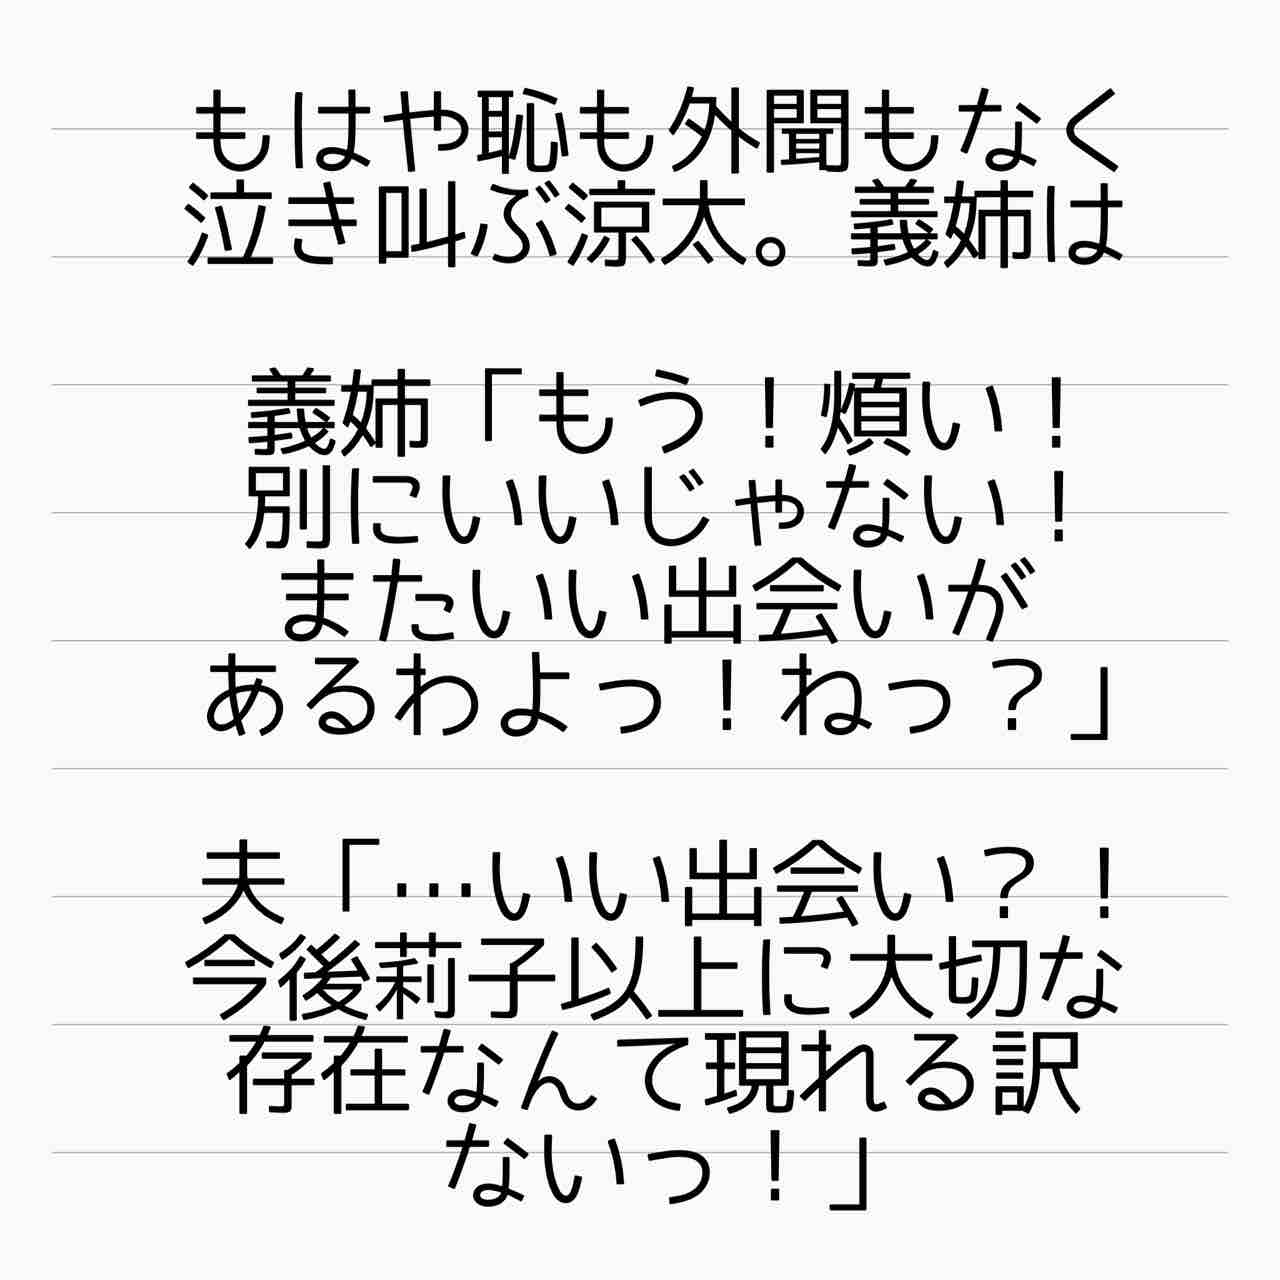 もはや恥も外聞もなく
泣き叫ぶ涼太。義姉は
義姉「もう！煩い！
別にいいじゃない！
またいい出会いが
あるわよっ！ねっ？」
夫「…いい出会い？！
今後莉子以上に大切な
存在なんて現れる訳
ないっ！」